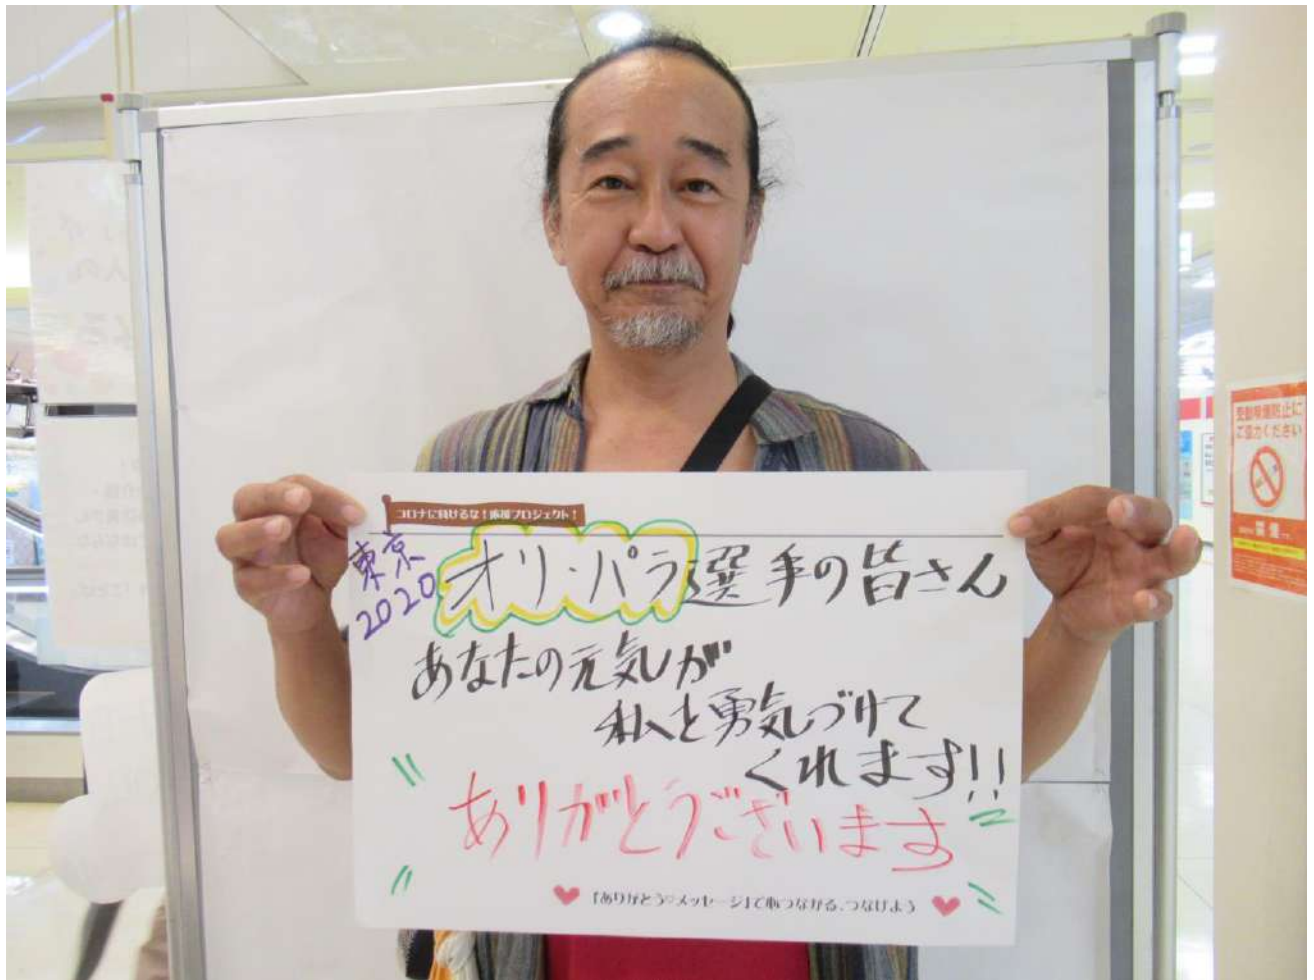 コロナに負けるな！応援プロジェクト！
東京
2020
オリ・パラ選手の皆さん
あなたの元気が
私を勇気づけて
くれます!!
ありがとうございます
「ありがとう♡メッセージ」で心つながる、つなげよう
受動喫煙防止に
ご協力ください
禁煙